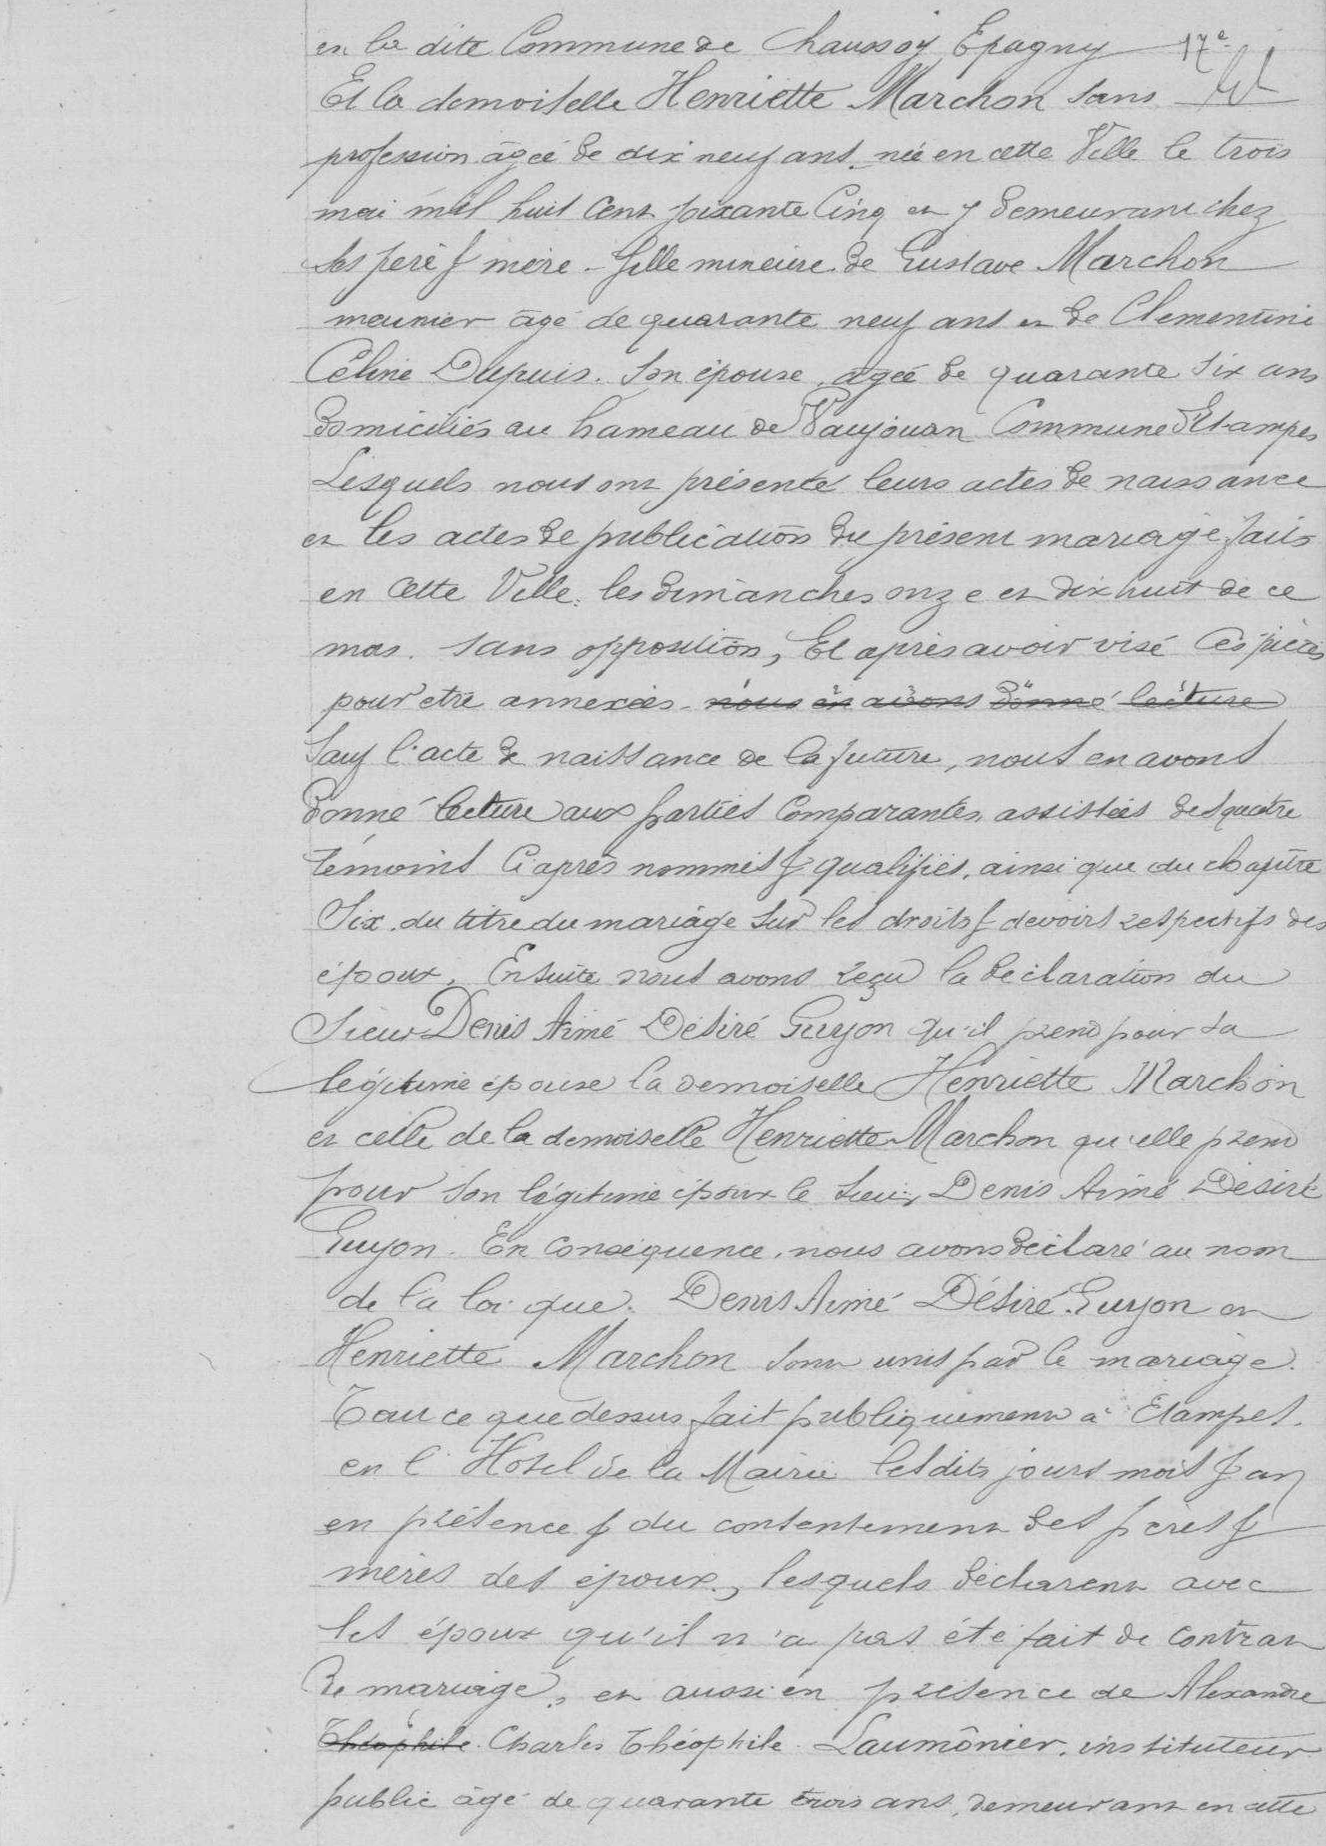 en la dite Commune de Chaussoy Epagny 17e
Et la demoiselle Henriette Marchon sans
profession âgée de dix neuf ans, née en cette Ville le trois
mai mil huit cent soixante Cinq et y demeurant chez
ses père & mère - fille mineure de Gustave Marchon
meunier âgé de quarante neuf ans et de Clementine
Céline Dupuis. son épouse, agée de quarante six ans
domiciliés au hameau de Vaujouan Commune d'Etampes
Lesquels nous ont présenté leurs actes de naissance
et les actes de publication du présent mariage faits
en cette Ville, les dimanches onze et dix huit de ce
mois. sans opposition, Et après avoir visé ces pièces
pour être annexées - nous en avons donné lecture
sauf l'acte de naissance de la future, nous en avons
donné lecture aux parties Comparantes, assistées des quatre
témoins ci après nommés & qualifiés, ainsi que du chapitre
Six. du titre du mariage sur les droits & devoirs respectifs des
époux. Ensuite nous avons reçu la déclaration du
Sieur Denis Aimé Désiré Guyon qu'il prend pour sa
légitime épouse la demoiselle Henriette Marchon
et celle de la demoiselle Henriette Marchon qu'elle prend
pour son légitime époux le sieur, Denis Aimé Désiré
Guyon. En conséquence, nous avons déclaré au nom
de la loi que. Denis Aimé Désiré Guyon et
Henriette Marchon sont unis par le mariage.
Tout ce que dessus fait publiquement à Etampes.
en l'Hotel de la Mairie lesdits jours mois & an
en présence & du consentement des pères &
mères des époux, lesquels déclarent avec
les époux qu'il n'a pas été fait de contrat
de mariage, et aussi en présence de Alexandre
Théophile Charles Théophile Laumônier, instituteur
public âgé de quarante trois ans, demeurant en cette